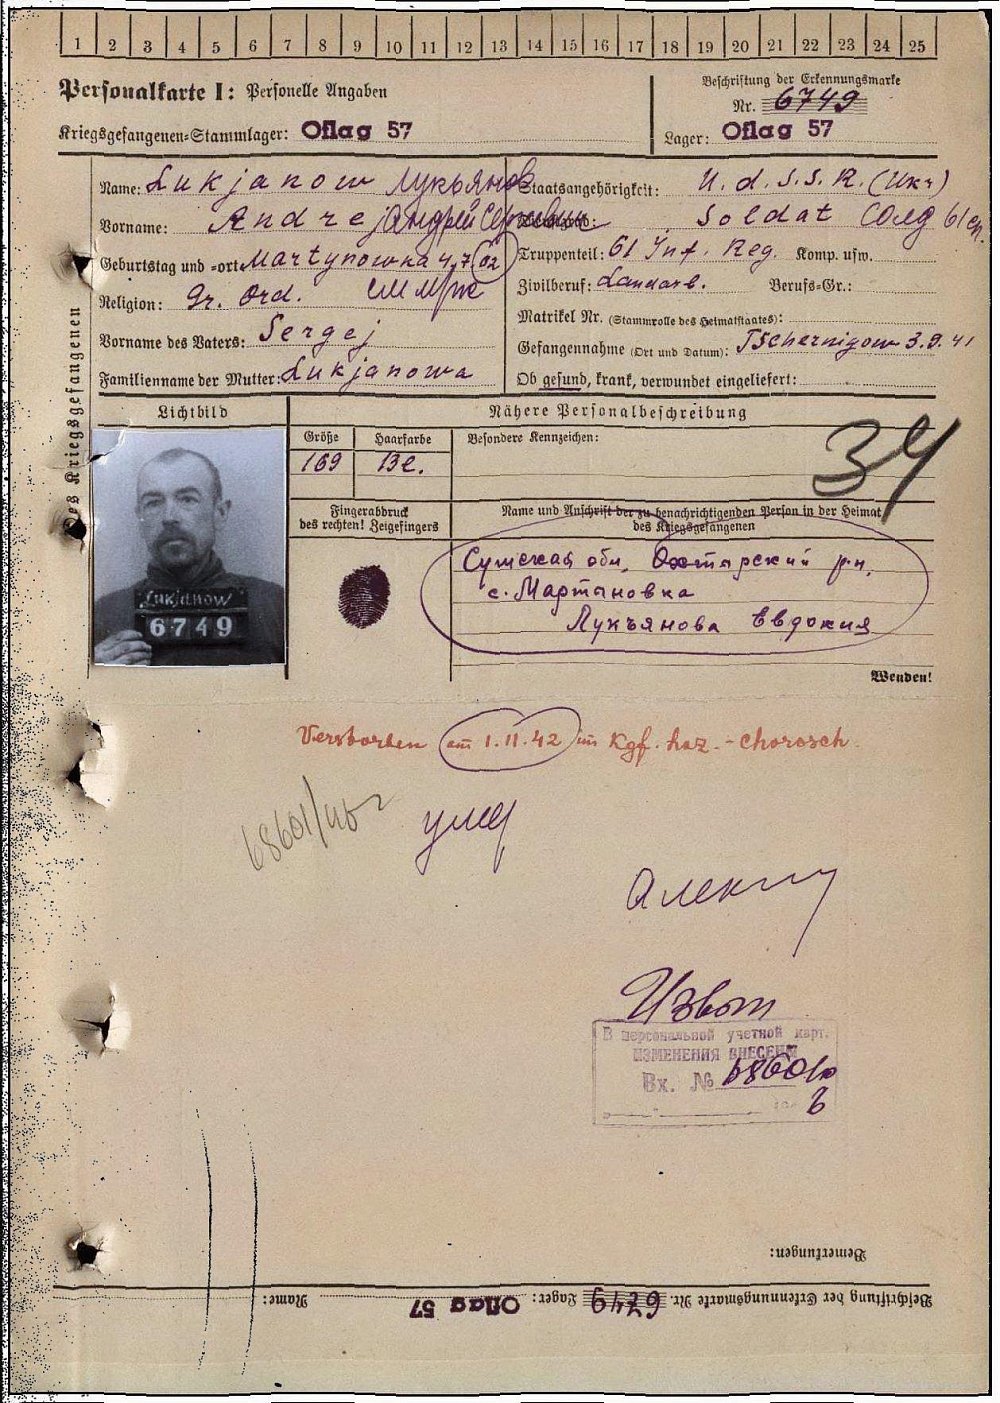 1 2 3 4 5 6 7 8 9 10 11 12 13 14 15 16 17 18 19 20 21 22 23 24 25
Personalkarte I: Personelle Angaben
Kriegsgefangenen-Stammlager: Oflag 57
Beschriftung der Erkennungsmarke
Nr. 6749
Lager: Oflag 57
des Kriegsgefangenen
Name: Lukjanow Лукьянов
Vorname: Andrej Андрей Сергеевич
Geburtstag und -ort: Martynowka 4.7.02
Religion: Gr. Ord.
Vorname des Vaters: Sergej
Familienname der Mutter: Lukjanowa
Staatsangehörigkeit: U.d.S.S.R. (Укр)
Soldat Солд 61 сп.
Truppenteil: 61 Inf. Reg. Komp. usw.
Zivilberuf: Landarb. Berufs-Gr.:
Matrikel Nr. (Stammrolle des Heimatstaates):
Gefangennahme (Ort und Datum): Tschernigow 3.9.41
Ob gesund, krank, verwundet eingeliefert:
Lichtbild
Lukjanow
6749
Nähere Personalbeschreibung
Größe Haarfarbe Besondere Kennzeichen:
169 Bl.
34
Fingerabdruck
des rechten! Zeigefingers
Name und Anschrift der zu benachrichtigenden Person in der Heimat
des Kriegsgefangenen
Сумская обл. Охтырский р-н.
с. Мартыновка
Лукъянова Евдокия
Wenden!
Verstorben am 1.11.42 im Kgf. Laz. - Chorosch.
умер
Извещ
В персональной учетной карт.
ИЗМЕНЕНИЯ ВНЕСЕНЫ
Вх. №
Bemerkungen:
Beschriftung der Erkennungsmarke Nr. 6749 Lager: Oflag 57 Name: